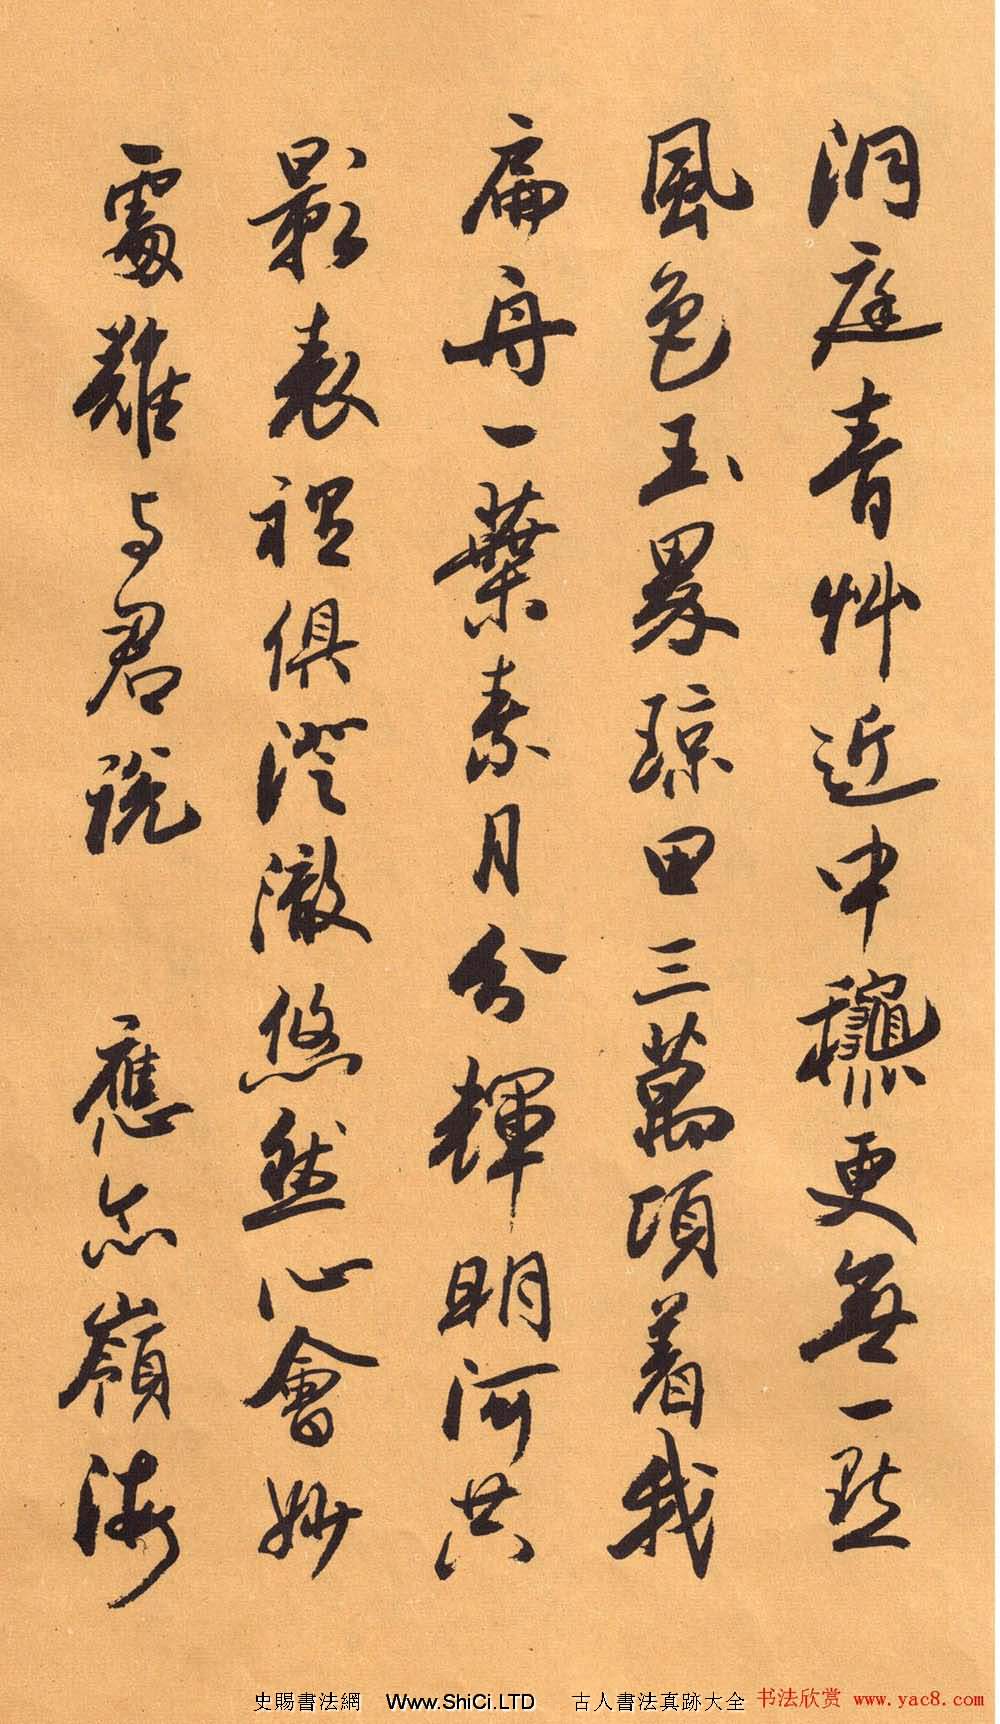 洞庭青艸近中龝更無一點
風色玉界瓊田三萬頃着我
扁舟一葉素月分輝明河共
影表裡俱澄澈悠然心會妙
處難与君說 應念嶺海
史賜書法網 Www.ShiCi.LTD 古人書法真跡大全 书法欣赏 www.yac8.com